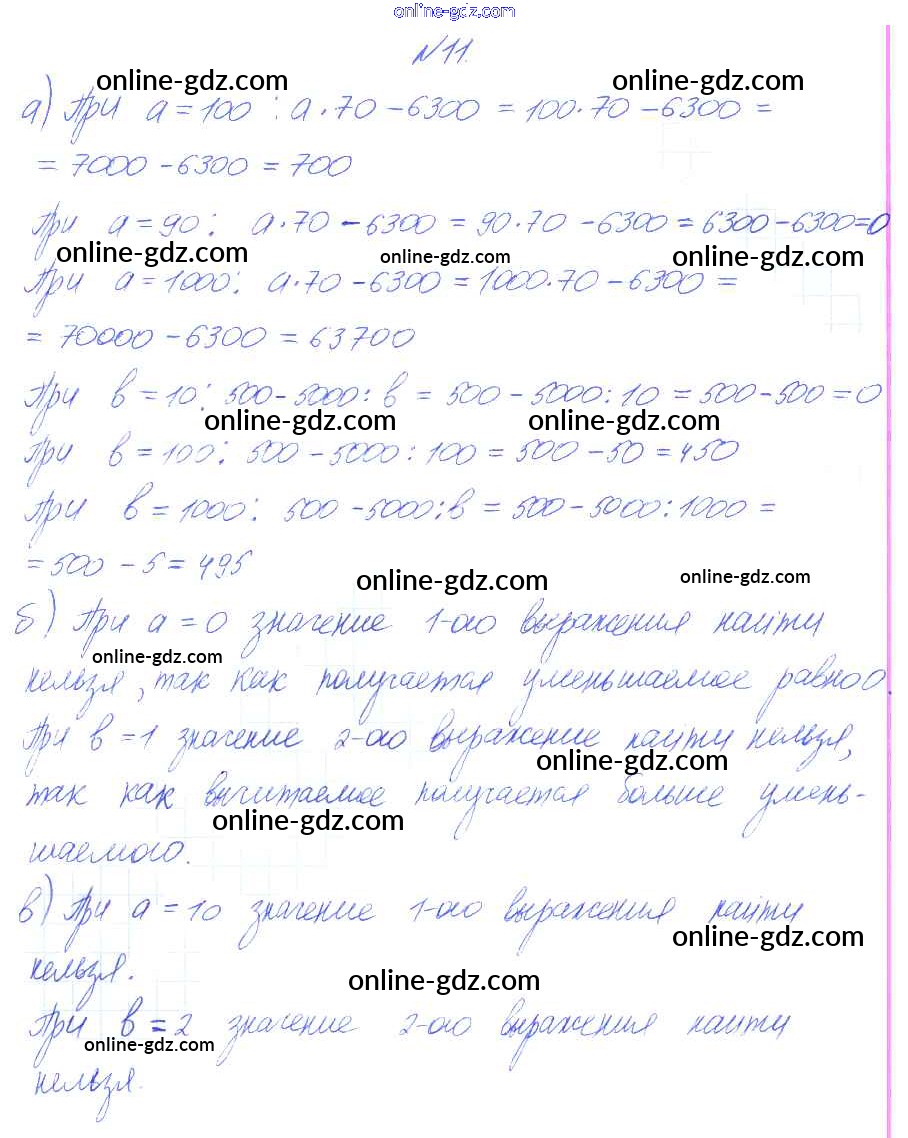 online-gdz.com
№11.
online-gdz.com online-gdz.com
а) При a = 100 : a · 70 – 6300 = 100 · 70 – 6300 =
= 7000 – 6300 = 700
При a = 90 : a · 70 – 6300 = 90 · 70 – 6300 = 6300 – 6300 = 0
online-gdz.com online-gdz.com online-gdz.com
При a = 1000 : a · 70 – 6300 = 1000 · 70 – 6300 =
= 70000 – 6300 = 63700
При в = 10 : 500 – 5000 : в = 500 – 5000 : 10 = 500 – 500 = 0
online-gdz.com online-gdz.com
При в = 100 : 500 – 5000 : 100 = 500 – 50 = 450
При в = 1000 : 500 – 5000 : в = 500 – 5000 : 1000 =
= 500 – 5 = 495
online-gdz.com online-gdz.com
б) При a = 0 значение 1-ого выражения найти
online-gdz.com
нельзя, так как получается уменьшаемое равно 0.
При в = 1 значение 2-ого выражение найти нельзя,
online-gdz.com
так как вычитаемое получается больше умень-
online-gdz.com
шаемого.
в) При a = 10 значение 1-ого выражения найти
online-gdz.com
нельзя.
online-gdz.com
При в = 2 значение 2-ого выражения найти
online-gdz.com
нельзя.